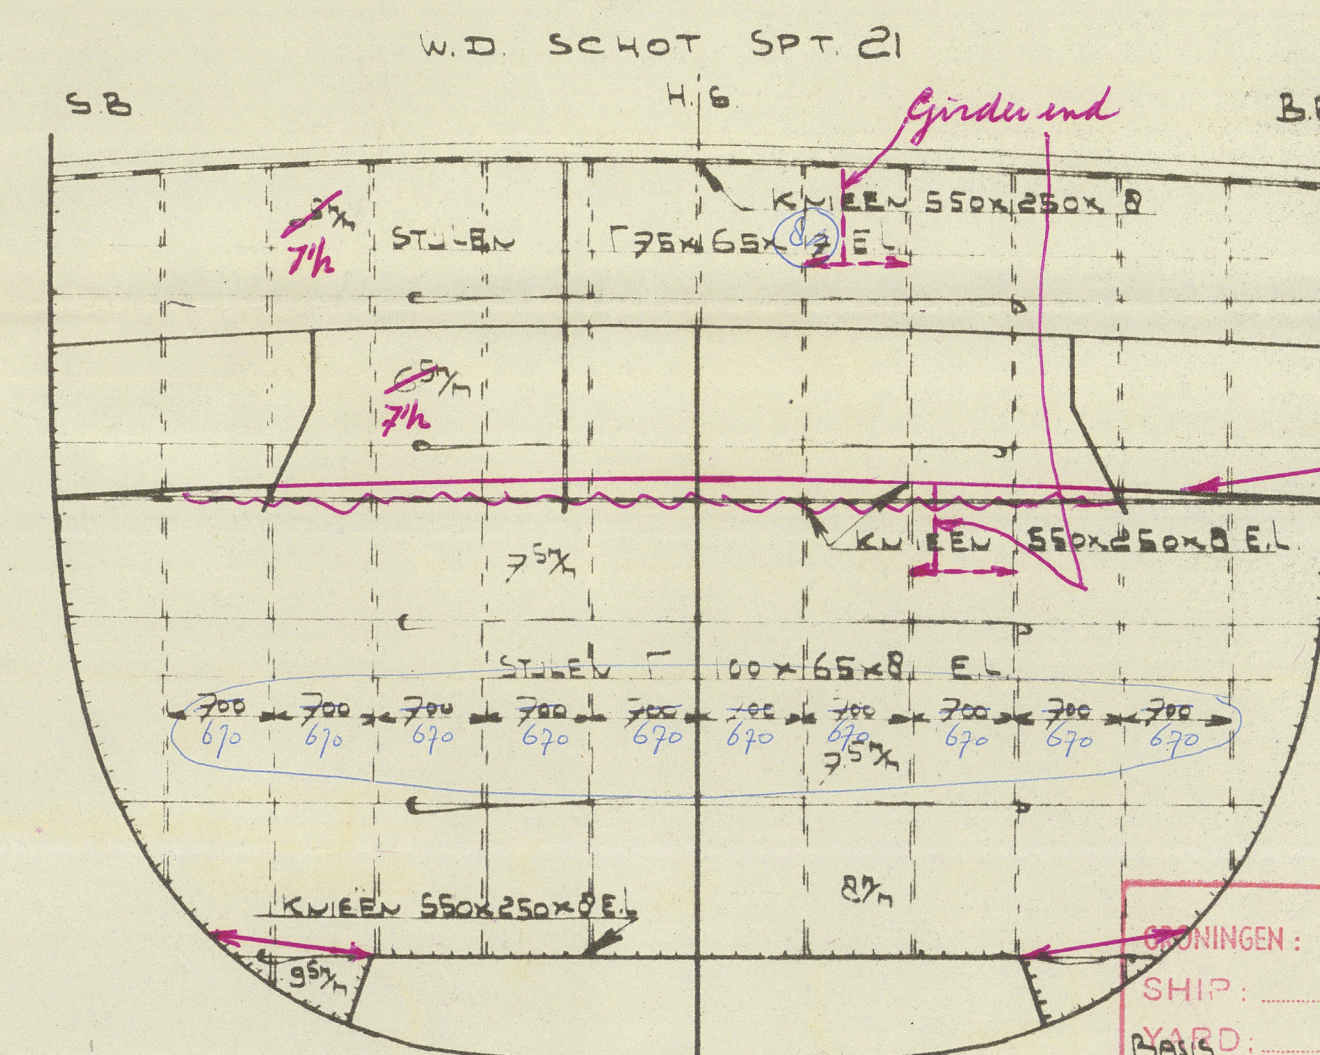 W.D. SCHOT SPT. 21
S.B
H.S.
Girder end
KNIEEN 550x250x8
7½
STIJLEN Γ 75x65x7 E.L
8
6 5 m/m
7½
KNIEEN 550x250x8 E.L.
7 5 m/m
STIJLEN Γ 100x65x8 E.L
700 700 700 700 700 700 700 700 700 700
670 670 670 670 670 670 670 670 670 670
7 5 m/m
8 m/m
KNIEEN 550x250x8 E.L
9 5 m/m
GRONINGEN:
SHIP:
YARD:
BASIS